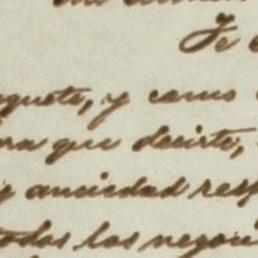 Te
oquete, y como
ra que decirte,
y anciedad resp
todos los negoci